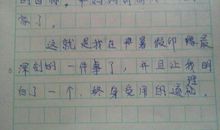 你了。
这就是我在寒暑假印象最
深刻的一件事了，并且让我明
白了一个终身受用的道理